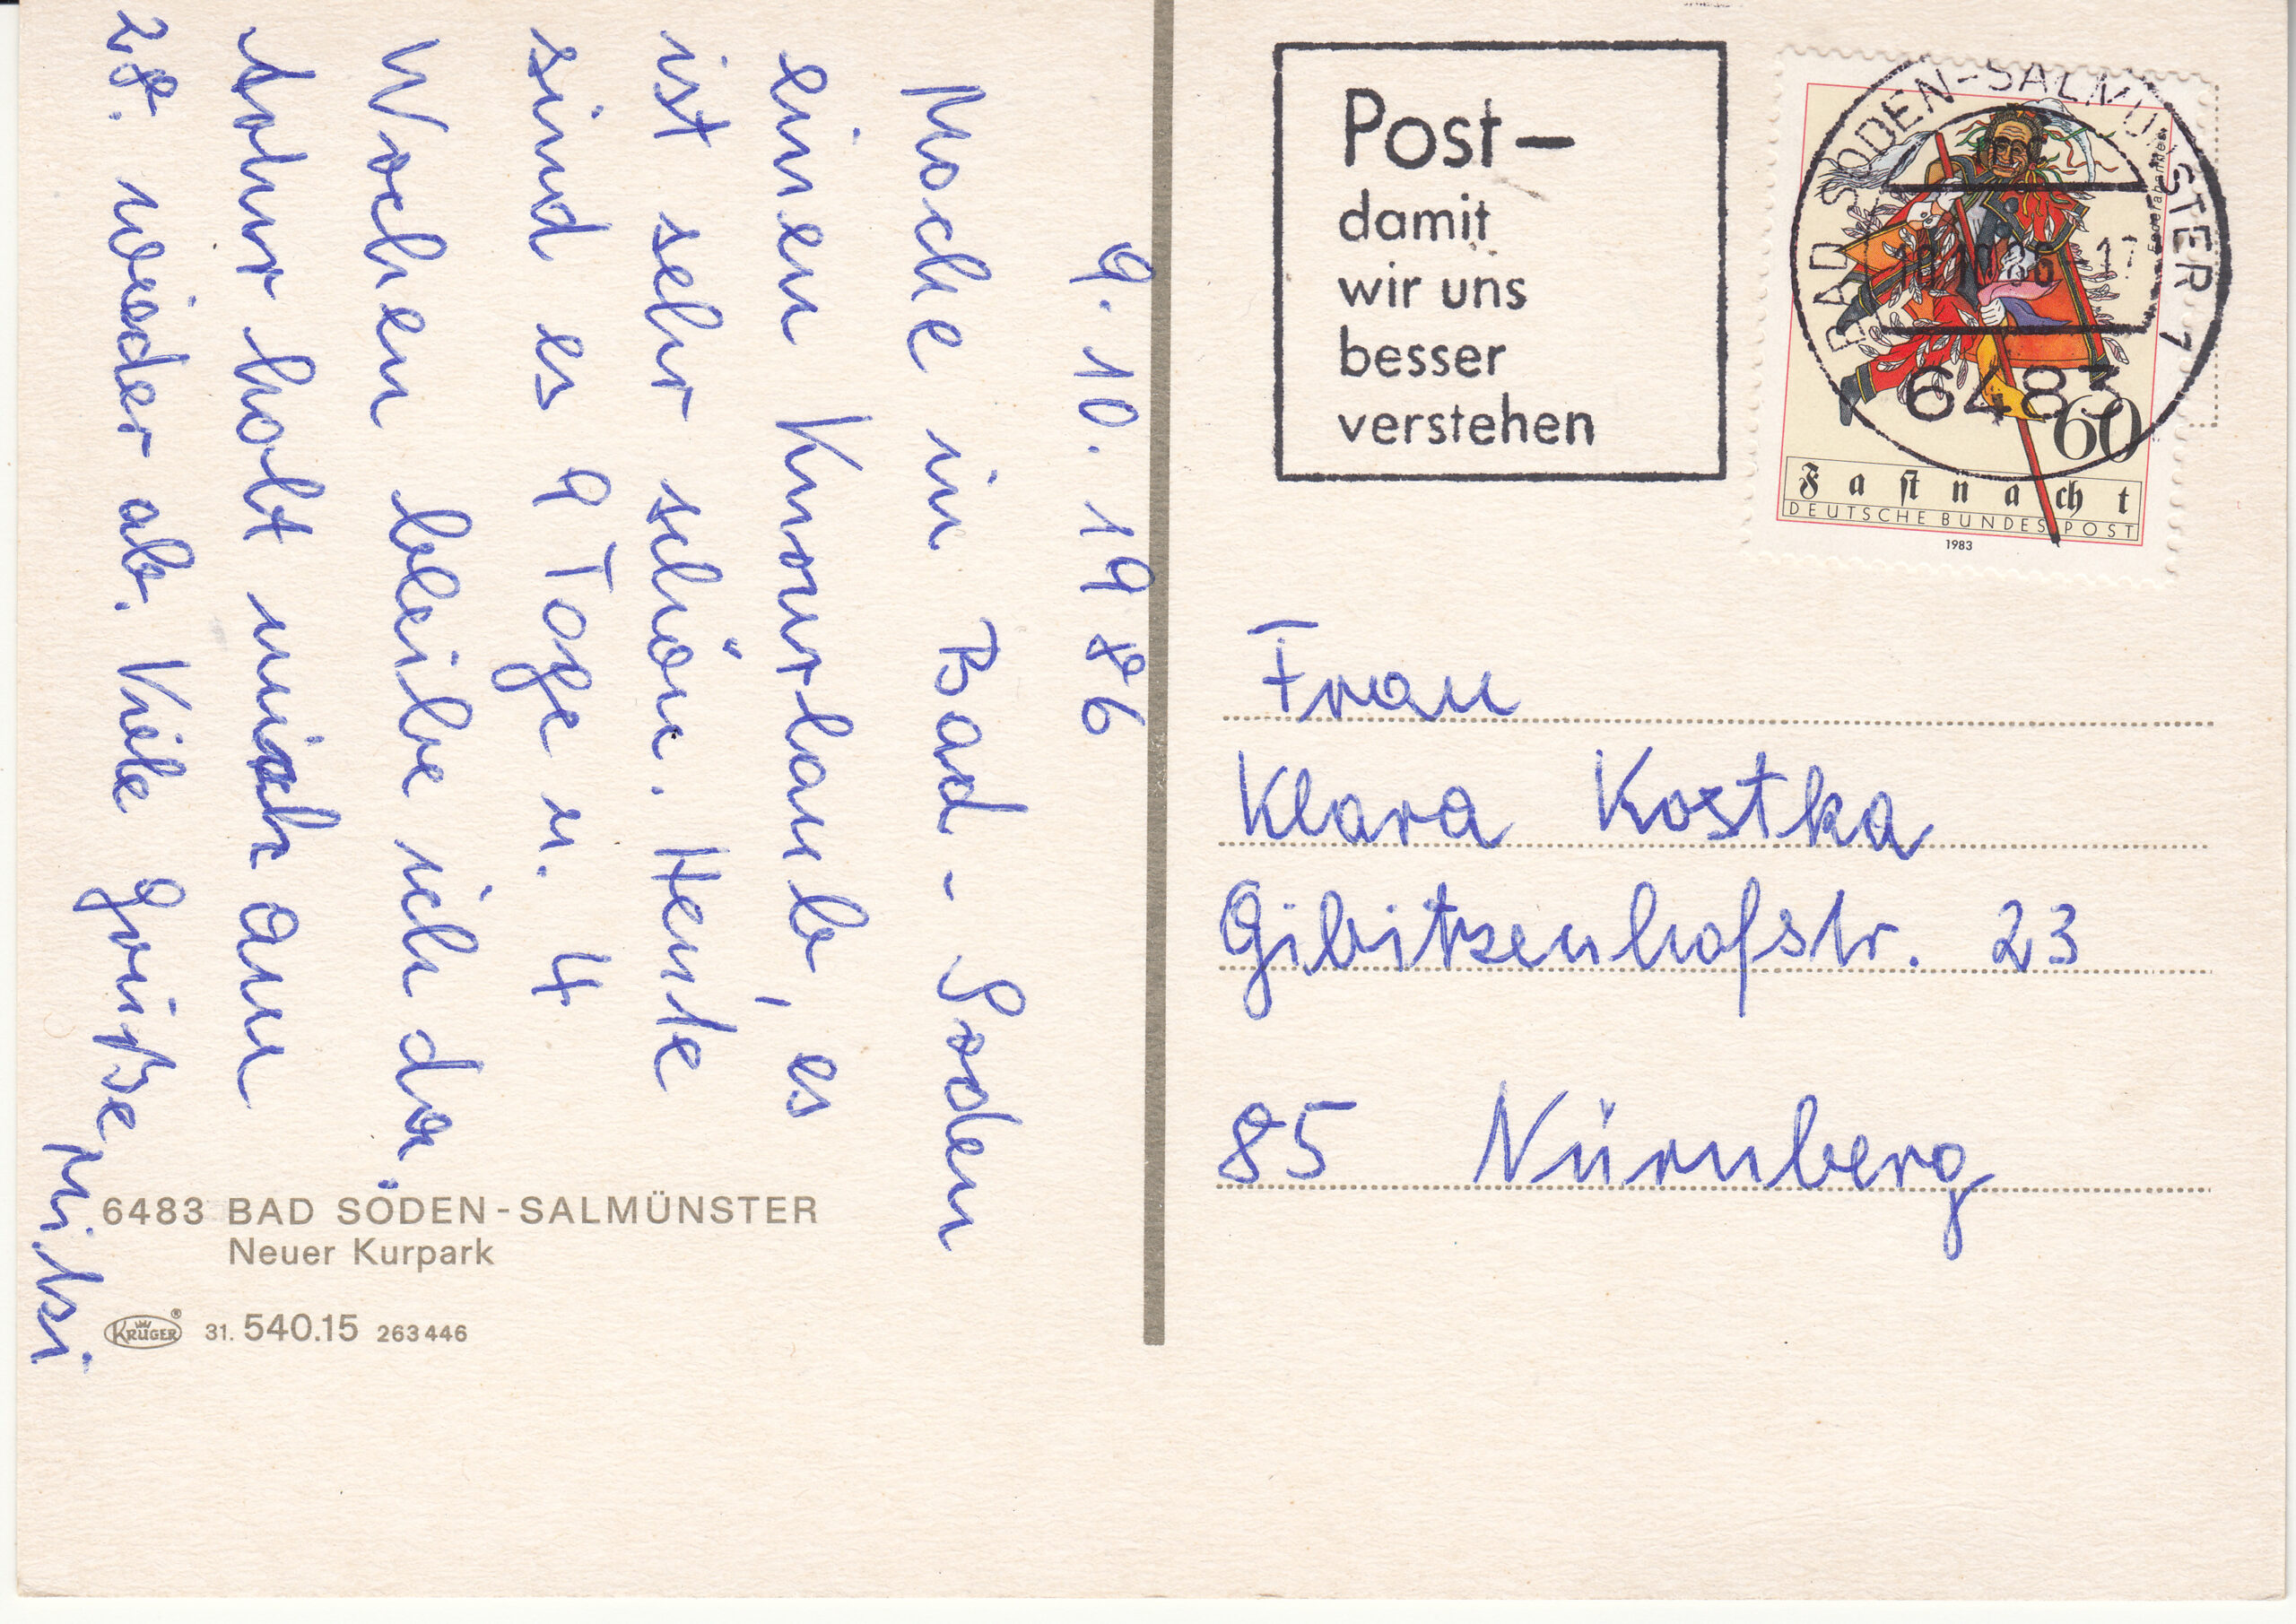 9. 10. 1986
Mache in Bad-Soden
einen Knourlaub, es
ist sehr schön. Heute
sind es 9 Tage u. 4
Wochen bleibe ich da.
Artur holt mich am
28. wieder ab. Viele Grüße, Mitsi
6483 BAD SODEN-SALMÜNSTER
Neuer Kurpark
KRÜGER® 31. 540.15 263 446
Post–
damit
wir uns
besser
verstehen
BAD SODEN-SALMÜNSTER 1
6483
60
Fastnacht
DEUTSCHE BUNDESPOST
1983
Frau
Klara Kostka
Gibitzenhofstr. 23
85 Nürnberg